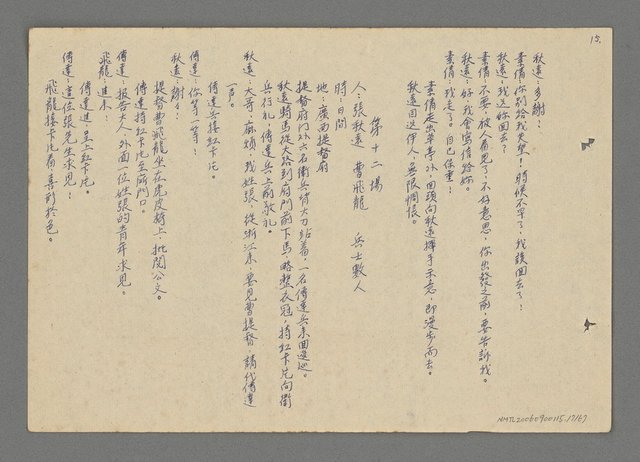 15.
秋遠：多謝！
素倩：你別給我失望！時候不早了，我該回去了！
秋遠：我送妳回去？
素倩：不要，被人看見了，不好意思，你出發之前，要告訴我。
秋遠：好，我會寫信給妳。
素倩：我走了。自己保重！
素倩走出草亭外，回頭向秋遠揮手示意，即漫步而去。
秋遠目送伊人，無限惆悵。
第十二場
人：張秋遠 曹飛龍 兵士數人
時：日間
地：廣西提督府
提督府門外六名衛兵背大刀站着，一名傳達兵來回巡邏。
秋遠騎馬從大路到府門前下馬，略整衣冠，持紅卡片向衛
兵行禮，傳達兵上前敬禮。
秋遠：大哥，麻煩，我姓張，從浙江來，要見曹提督，請代傳達
一声。
傳達兵接紅卡片。
傳達：你等一等！
秋遠：謝了！
提督曹飛龍坐在虎皮椅上，批閱公文。
傳達持紅卡片至廳門口。
傳達：報告大人，外面一位姓張的青年求見。
飛龍：進來！
傳達進，呈上紅卡片。
傳達：這位張先生求見！
飛龍接卡片看，喜形於色。
NMTL20060900115.17/67